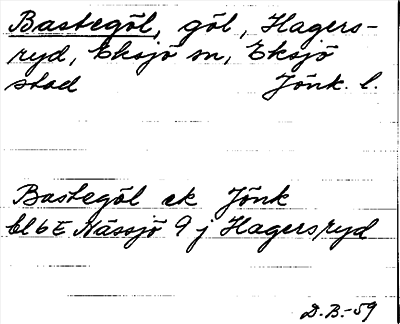 Bastegöl, göl, Hagers-
ryd, Eksjö sn, Eksjö
stad Jönk. l.
Bastegöl ek Jönk
bl 6E Nässjö 9 j Hagersryd
D.B.-59